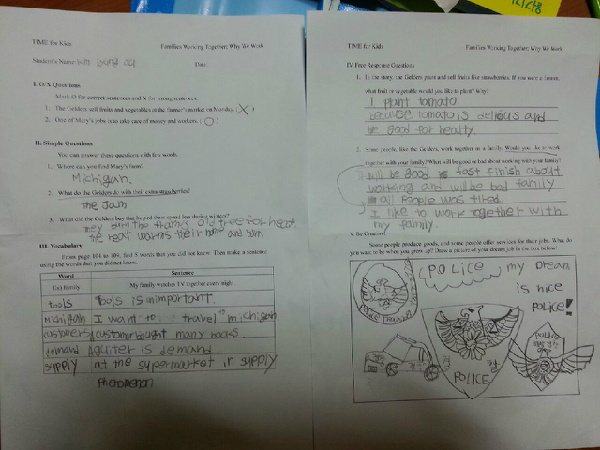 TIME for Kids Families Working Together: Why We Work
Student's Name:
Date
I. O/X Questions
Mark O for correct sentences and X for wrong sentences.
1. The Geldens sell fruits and vegetables at the farmer's market on Monday. (X)
2. One of Mary's jobs is to take care of money and workers. (O)
II. Simple Questions
You can answer these questions with few words.
1. Where can you find Mary's farm?
Michigan.
2. What do the Geldens do with their extra strawberries?
The Jam
old tree for heat
the heat warms their home and barn
III. Vocabulary
From page 101 to 109, find 5 words that you did not know. Then make a sentence
using the words that you did not know.
Word Sentence
Ex) family My family watches TV together every night.
tools tools is an important.
Michigan I want to travel michigan
customers customer bought many books
demand is demand
supply at the supermarket ir supply
Phenomenon
TIME for Kids Families Working Together: Why We Work
IV Free Response Questions
1. In the story, the Geldens plant and sell fruits like strawberries. If you were a farmer,
what fruit or vegetable would you like to plant? Why?
I plant tomato
because tomato is delicious and
be good for healty
2. Some people, like the Geldens, work together as a family. Would you like to work
together with your family? What will be good or bad about working with your family?
It will be good is fast finish about
working and will be bad family
all people was tired.
I like to work together with
my family.
Some people produce goods, and some people offer services for their jobs. What do
you want to be when you grow up? Draw a picture of your dream job in the box below!
POLICE my Dream
is nice
police!
POLICE